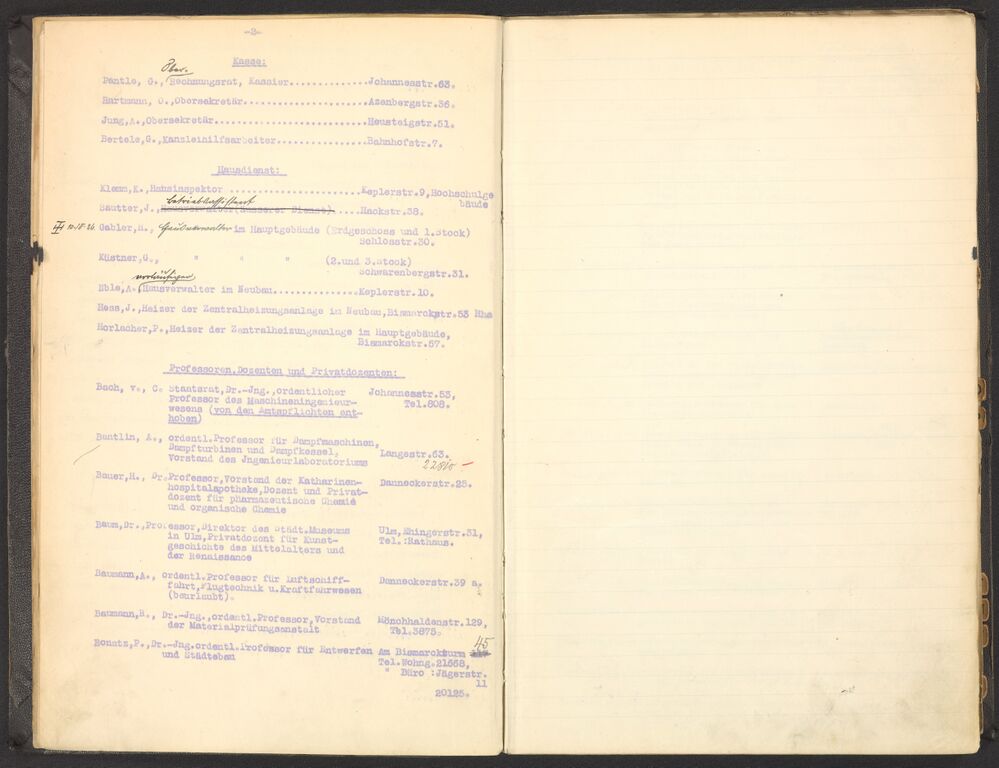 -2-
Kasse:
Ober-
Pantle, G., Rechnungsrat, Kassier..............Johannesstr.63.
Hartmann, O.,Obersekretär......................Azenbergstr.36.
Jung,A.,Obersekretär...........................Heusteigstr.51.
Bertele,G.,Kanzleihilfsarbeiter................Bahnhofstr.7.
Hausdienst:
Klemm,K.,Hausinspektor ....................Keplerstr.9,Hochschulge
bäude
Betriebsassistent
Sautter,J.,Hausverwalter(äusserer Dienst)....Hackstr.38.
Gabler,H., Hausverwalter im Hauptgebäude (Erdgeschoss und 1.Stock)
Schlosstr.30.
Küstner,G., " " " (2.und 3.Stock)
Schwarenbergstr.31.
vorläufiger
Eble,A.,Hausverwalter im Neubau..............Keplerstr.10.
Hess,J.,Heizer der Zentralheizungsanlage im Neubau,Bismarckstr.53 Hhs
Horlacher,P.,Heizer der Zentralheizungsanlage im Hauptgebäude,
Bismarckstr.57.
Professoren,Dozenten und Privatdozenten:
Bach, v., C. Staatsrat,Dr.-Jng.,ordentlicher Johannesstr.53,
Professor des Maschineningenieur- Tel.808.
wesens (von den Amtspflichten ent-
hoben)
Bantlin, A., ordentl.Professor für Dampfmaschinen,
Dampfturbinen und Dampfkessel, Langestr.63.
Vorstand des Jngenieurlaboratoriums
Bauer,H., Dr.Professor,Vorstand der Katharinen- Danneckerstr.25.
hospitalapotheke,Dozent und Privat-
dozent für pharmazeutische Chemie
und organische Chemie
Baum,Dr.,Professor,Direktor des Städt.Museums Ulm,Ehingerstr.31,
in Ulm,Privatdozent für Kunst- Tel.:Rathaus.
geschichte des Mittelalters und
der Renaissance
Baumann,A., ordentl.Professor für Luftschiff- Danneckerstr.39 a.
fahrt,Flugtechnik u.Kraftfahrwesen
(beurlaubt).
Baumann,R., Dr.-Jng.,ordentl.Professor,Vorstand Mönchhaldenstr.129,
der Materialprüfungsanstalt Tel.3875.
45
Bonatz,P.,Dr.-Jng.ordentl.Professor für Entwerfen Am Bismarckturm
und Städtebau Tel.Wohng.21668,
" Büro :Jägerstr.
11
20125.